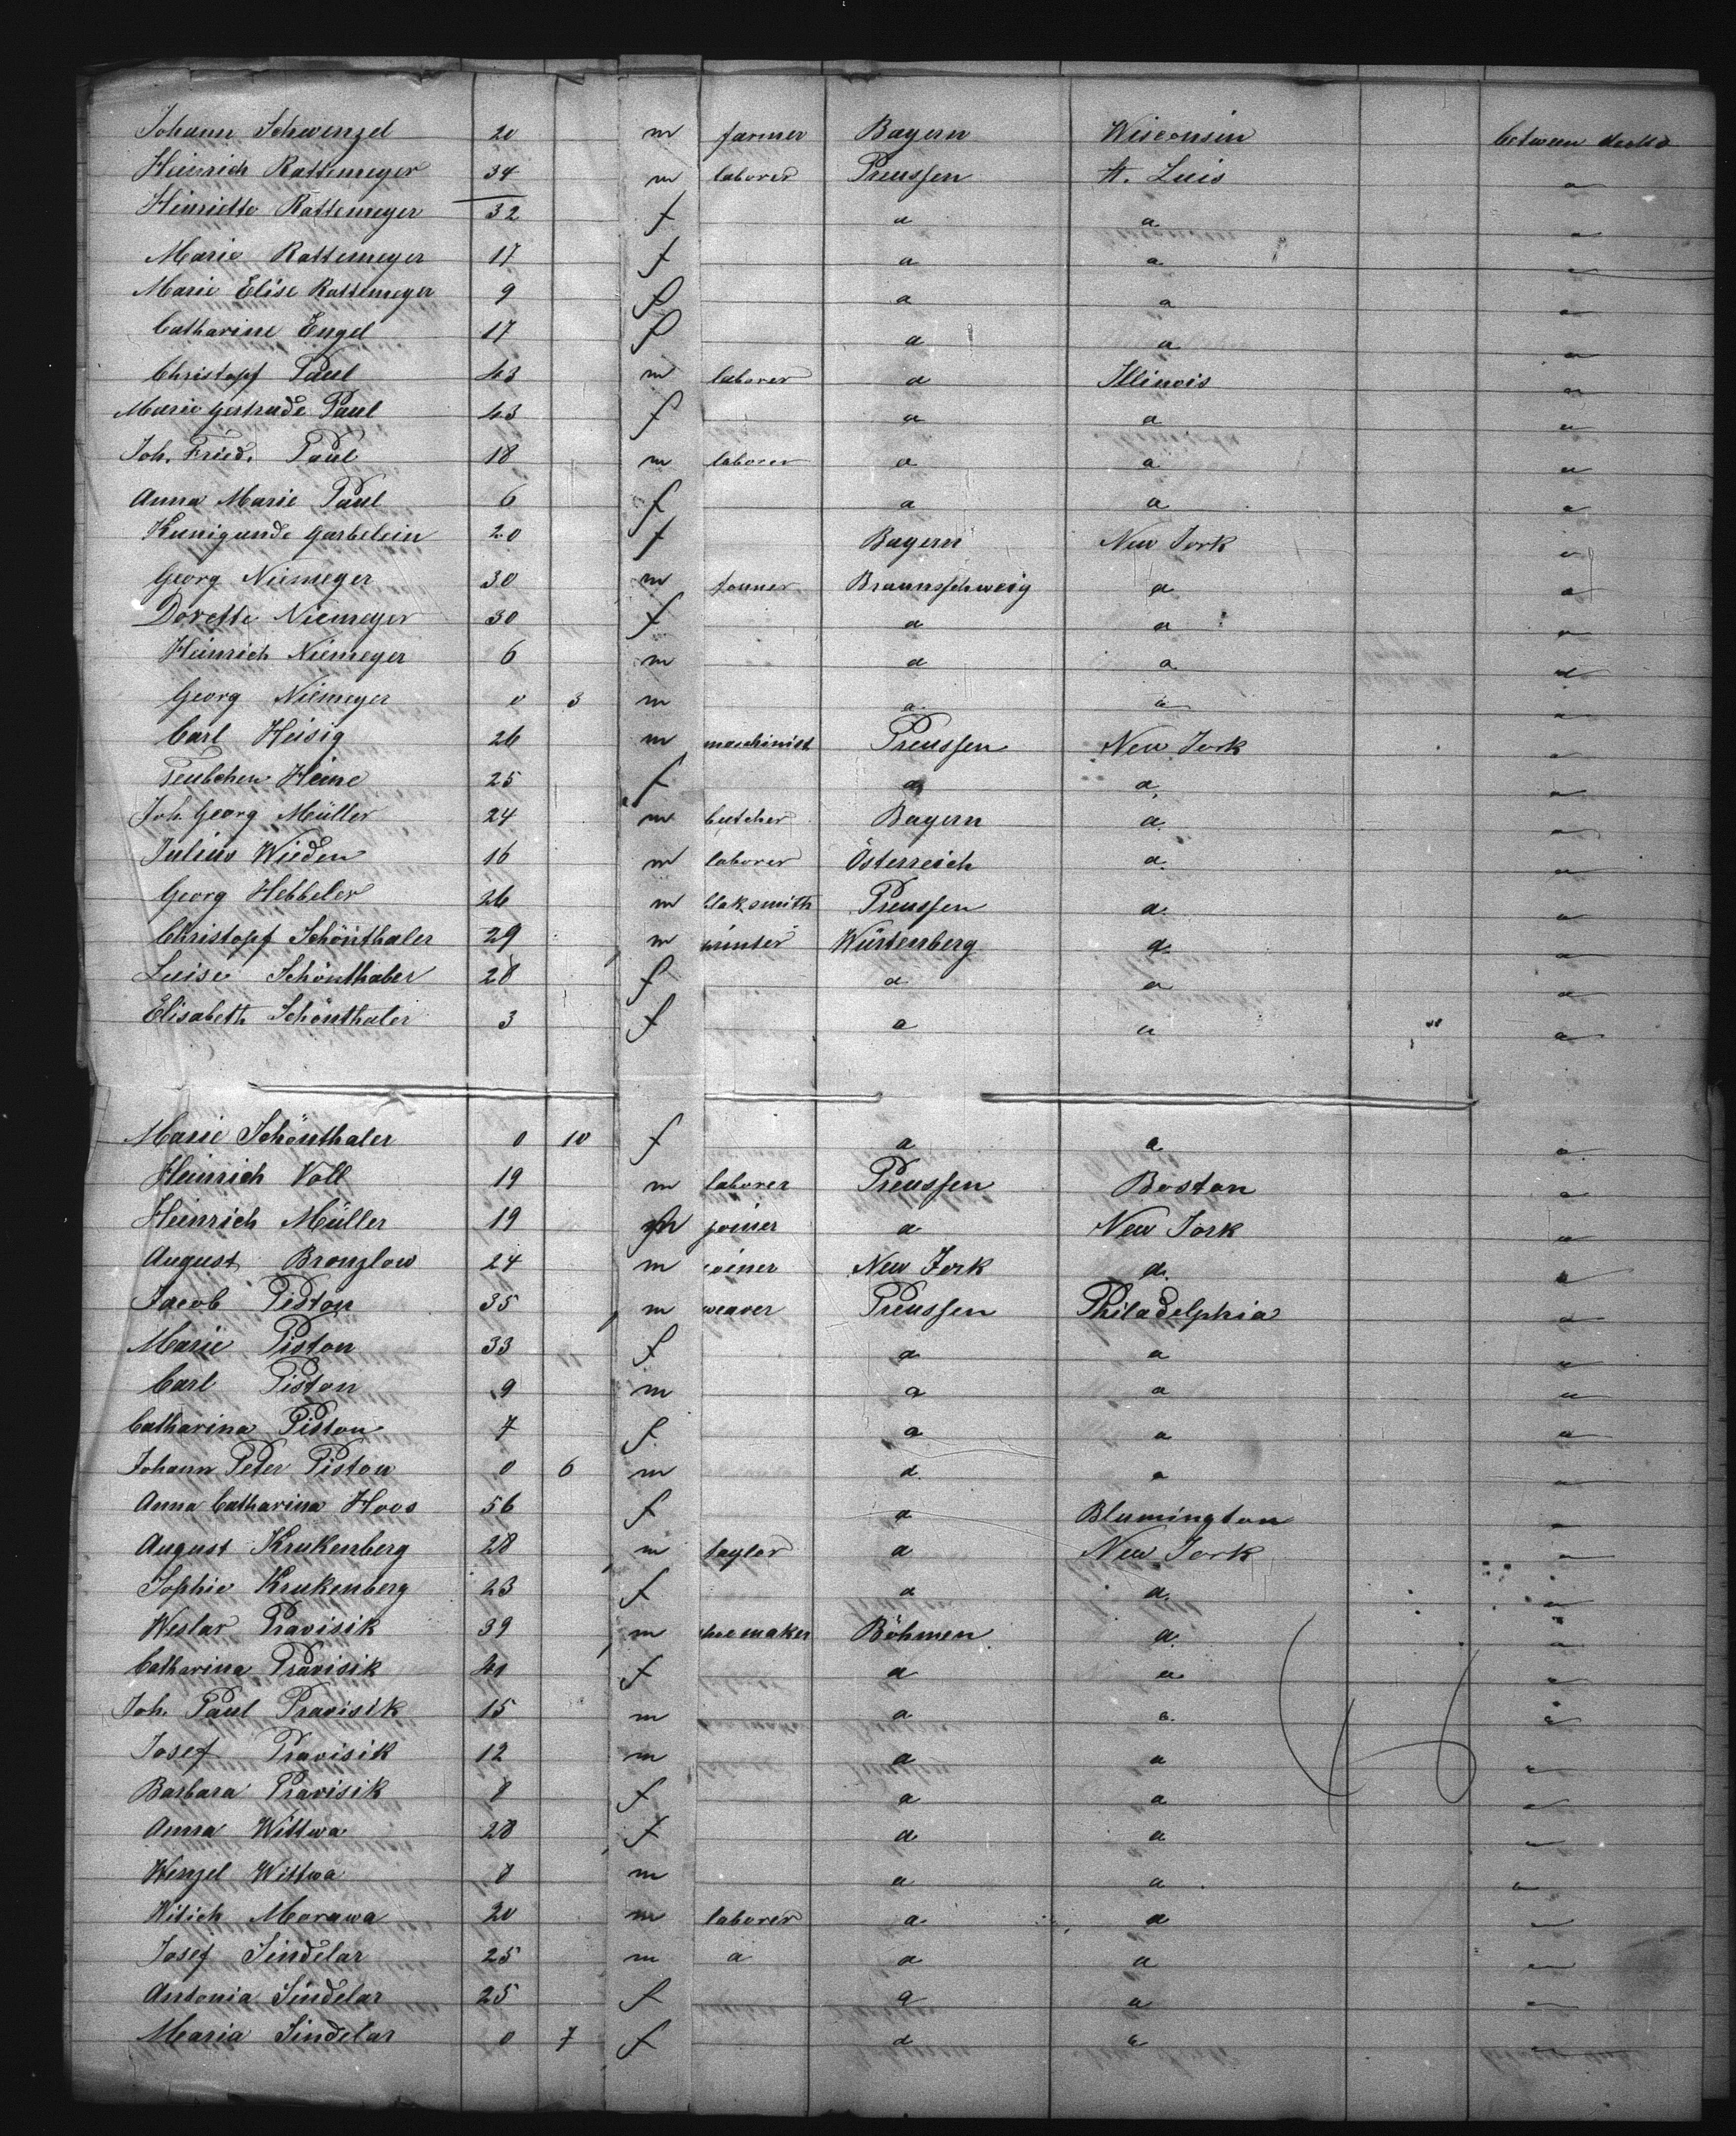 Johann Schwenzel 20 m farmer Bayern Wisconsin between decks
Heinrich Rattemeyer 34 m laborer Preussen St. Luis a
Henriette Rattemeyer 32 f a a a
Marie Rattemeyer 17 f a a a
Marie Elise Rattemeyer 9 f a a a
Catharine Engel 17 f a a a
Christopf Paul 43 m laborer a Illinois a
Marie Gertrude Paul 43 f a a a
Joh. Fried. Paul 18 m laborer a a a
Anna Marie Paul 6 f a a a
Kunigunde Garbelein 20 f Bayern New Jork a
Georg Niemeyer 30 m Braunsschweig a a
Dorette Niemeyer 30 f a a a
Heinrich Niemeyer 6 m a a a
Georg Niemeyer 0 3 m a a a
Carl Heisig 26 m maschinist Preussen New Jork a
Heine 25 f a a a
Joh. Georg Müller 24 m butcher Bayern a a
Julius Wieden 16 m laborer Österreich a a
Georg Hebbeler 26 m blaksmith Preussen a a
Christopf Schönthaler 29 m printer Würtenberg a a
Luise Schönthaler 28 f a a a
Elisabeth Schönthaler 3 f a a a
Marie Schönthaler 0 10 f a a a
Heinrich Voll 19 m laborer Preussen Boston a
Heinrich Müller 19 m joiner a New Jork a
August Bronzlow 24 m joiner New Jork a a
Jacob Piston 35 m weaver Preussen Philadelphia a
Marie Piston 33 f a a a
Carl Piston 9 m a a a
Catharina Piston 7 f a a a
Johann Peter Piston 0 6 m a a a
Anna Catharina Hoos 56 f a Blumington a
August Krukenberg 28 m taylor a New Jork a
Sophie Krukenberg 23 f a a a
Weslar Pravisik 39 m shoemaker Böhmen a a
Catharina Pravisik 40 f a a a
Joh. Paul Pravisik 15 m a a a
Josef Pravisik 12 m a a a
Barbara Pravisik 8 f a a a
Anna Wittwa 28 f a a a
Wenzel Wittwa 8 m a a a
Witich Morawa 20 m laborer a a a
Josef Sindelar 25 m a a a a
Antonia Sindelar 25 f a a a
Maria Sindelar 0 7 f a a a